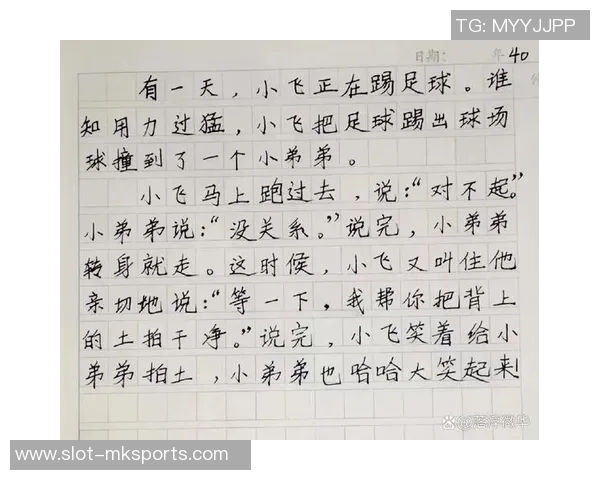 TG: MYYJJPP
日期: 年 40
有一天，小飞正在踢足球。谁
知用力过猛，小飞把足球踢出球场
球撞到了一个小弟弟。
小飞马上跑过去，说：“对不起”
小弟弟说：“没关系。”说完，小弟弟
转身就走。这时候，小飞又叫住他
亲切地说：“等一下，我帮你把背上
的土拍干净。”说完，小飞笑着给小
弟弟拍土，小弟弟也哈哈大笑起来
www.slot-mksports.com